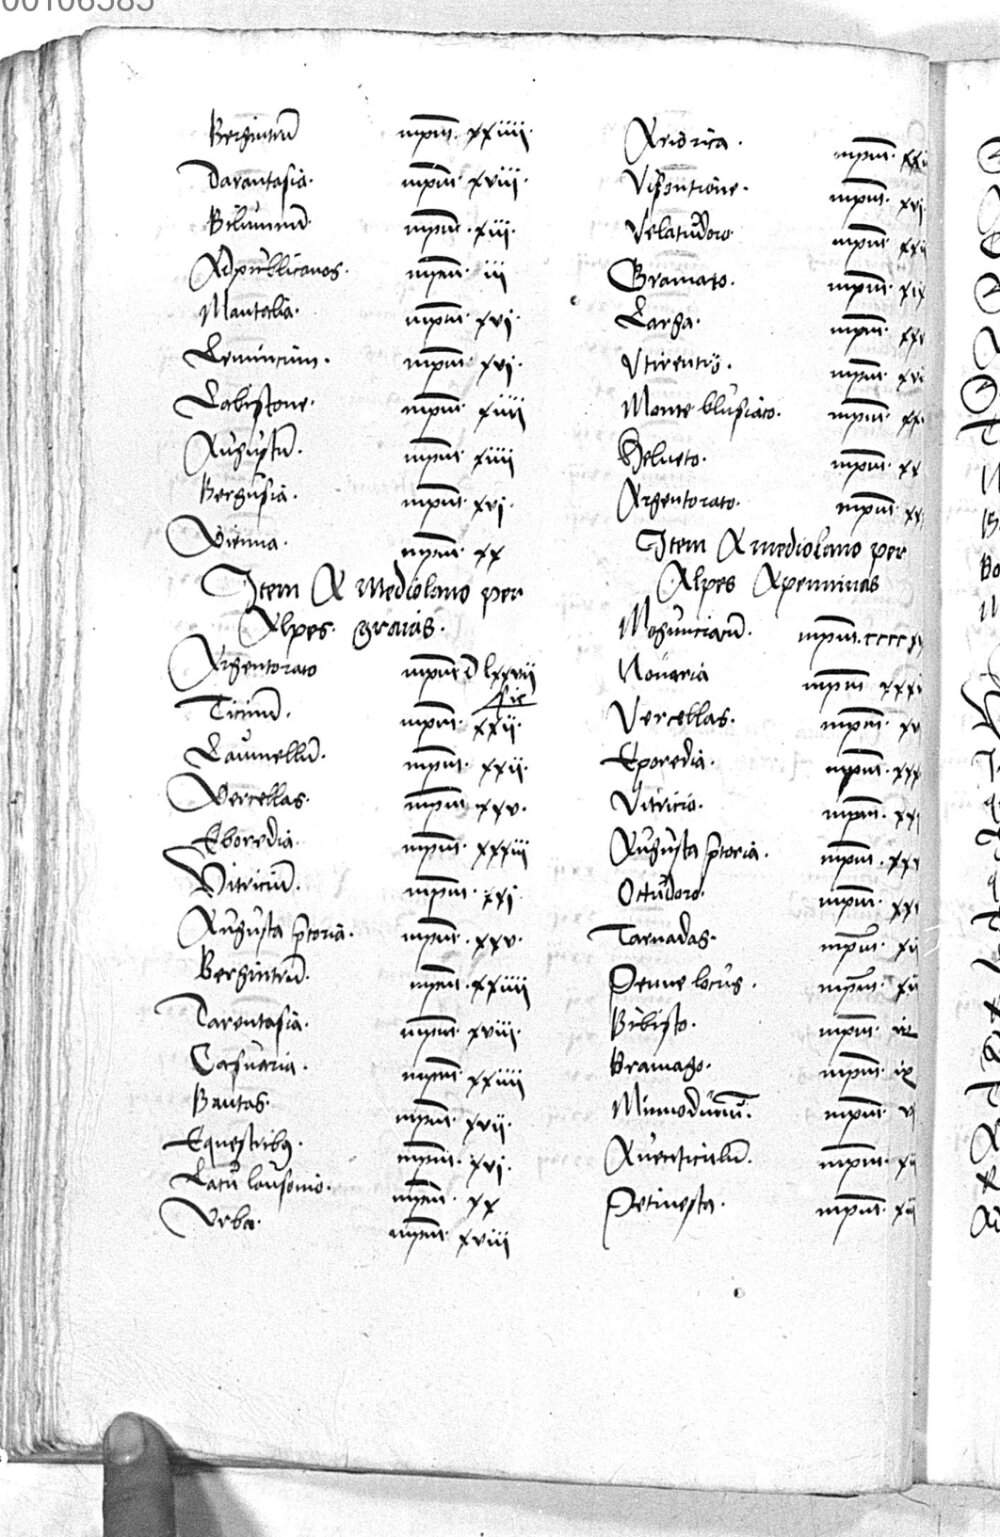 00106385
Bergintrū mpm̄. xxiiii.
Darantasia. mpm̄ xviii.
Bilummū mpm̄. xiii.
Adpublicanos. mpm̄ iii
Mantalia. mpm̄ xvi.
Lemincum. mpm̄ xvi.
Labistone. mpm̄ xiiii
Augustū. mpm̄ xiiii
Bergusia. mpm̄ xvi.
Vienna. mpm̄ xx
Item A mediolano per
Alpes graias.
Argentorato mpm̄ D lxxvii
sic
Ticinū. mpm̄ xxii.
Laumellū. mpm̄. xxii.
Vercellas. mpm̄ xxv.
Eboredia mpm̄. xxxiii
Vitricium. mpm̄. xxi.
Augusta p̄toria. mpm̄. xxv.
Bergintrū. mpm̄. xxiiii
Tarentasia. mpm̄ xviii.
Casuaria. mpm̄ xxiiii
Bautas mpm̄ xvii.
Equestribꝰ. mpm̄. xvi.
Lacū lausonio. mpm̄. xx
Urba. mpm̄. xviii
Ariorica. mpm̄.
Visontione. mpm̄. xvi.
Velatudoro mpm̄
Gramato. mpm̄. xix
Larga. mpm̄
Utirentis. mpm̄
Monte blusiaco. mpm̄
Helueto. mpm̄
Argentorato. mpm̄
Item A mediolano per
Alpes Apenninas
Mogunciacū. mpm̄. cccc
Nouaria mpm̄
Vercellas. mpm̄
Eporedia. mpm̄
Vitricio. mpm̄.
Augusta p̄toria. mpm̄.
Octudoro. mpm̄.
Tarnadas. mpm̄. xii
Penne locus. mpm̄. xii
Bibisto. mpm̄. ix
Bramago. mpm̄ ix
Minnodunū. mpm̄ vi
Auenticulū. mpm̄. xii
Petinesta. mpm̄. xii